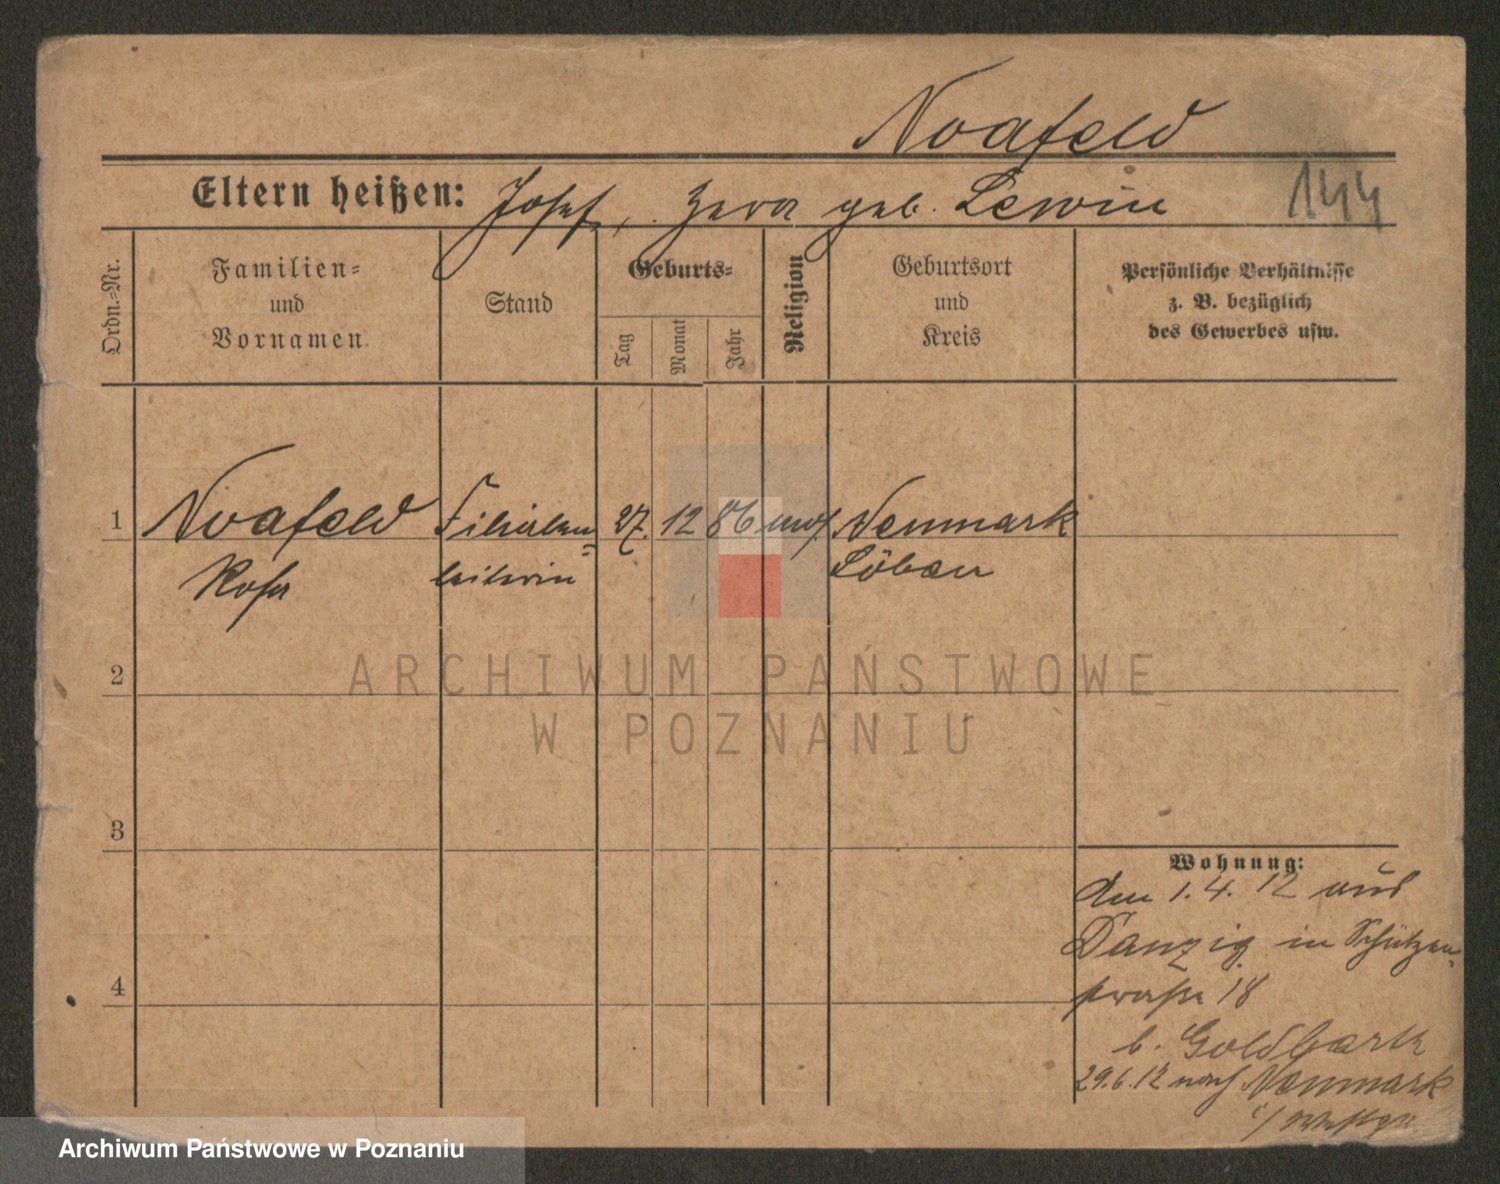 Noafeld
Eltern heißen: Josef, Zera geb. Lewin
144
Ordn.-Nr.
Familien-
und
Vornamen.
Stand
Geburts-
Tag
Monat
Jahr
Religion
Geburtsort
und
Kreis
Persönliche Verhältnisse
z. B. bezüglich
des Gewerbes usw.
1
Noafeld
Rosa
Filialen-
leiterin
27. 12 86
mos.
Neumark
Löbau
2
3
4
Wohnung:
Am 1.4.12 aus
Danzig in Schützen-
straße 18
b. Goldbarth
29.6.12 nach Neumark
i/ Westpr.
ARCHIWUM PAŃSTWOWE
W POZNANIU
Archiwum Państwowe w Poznaniu